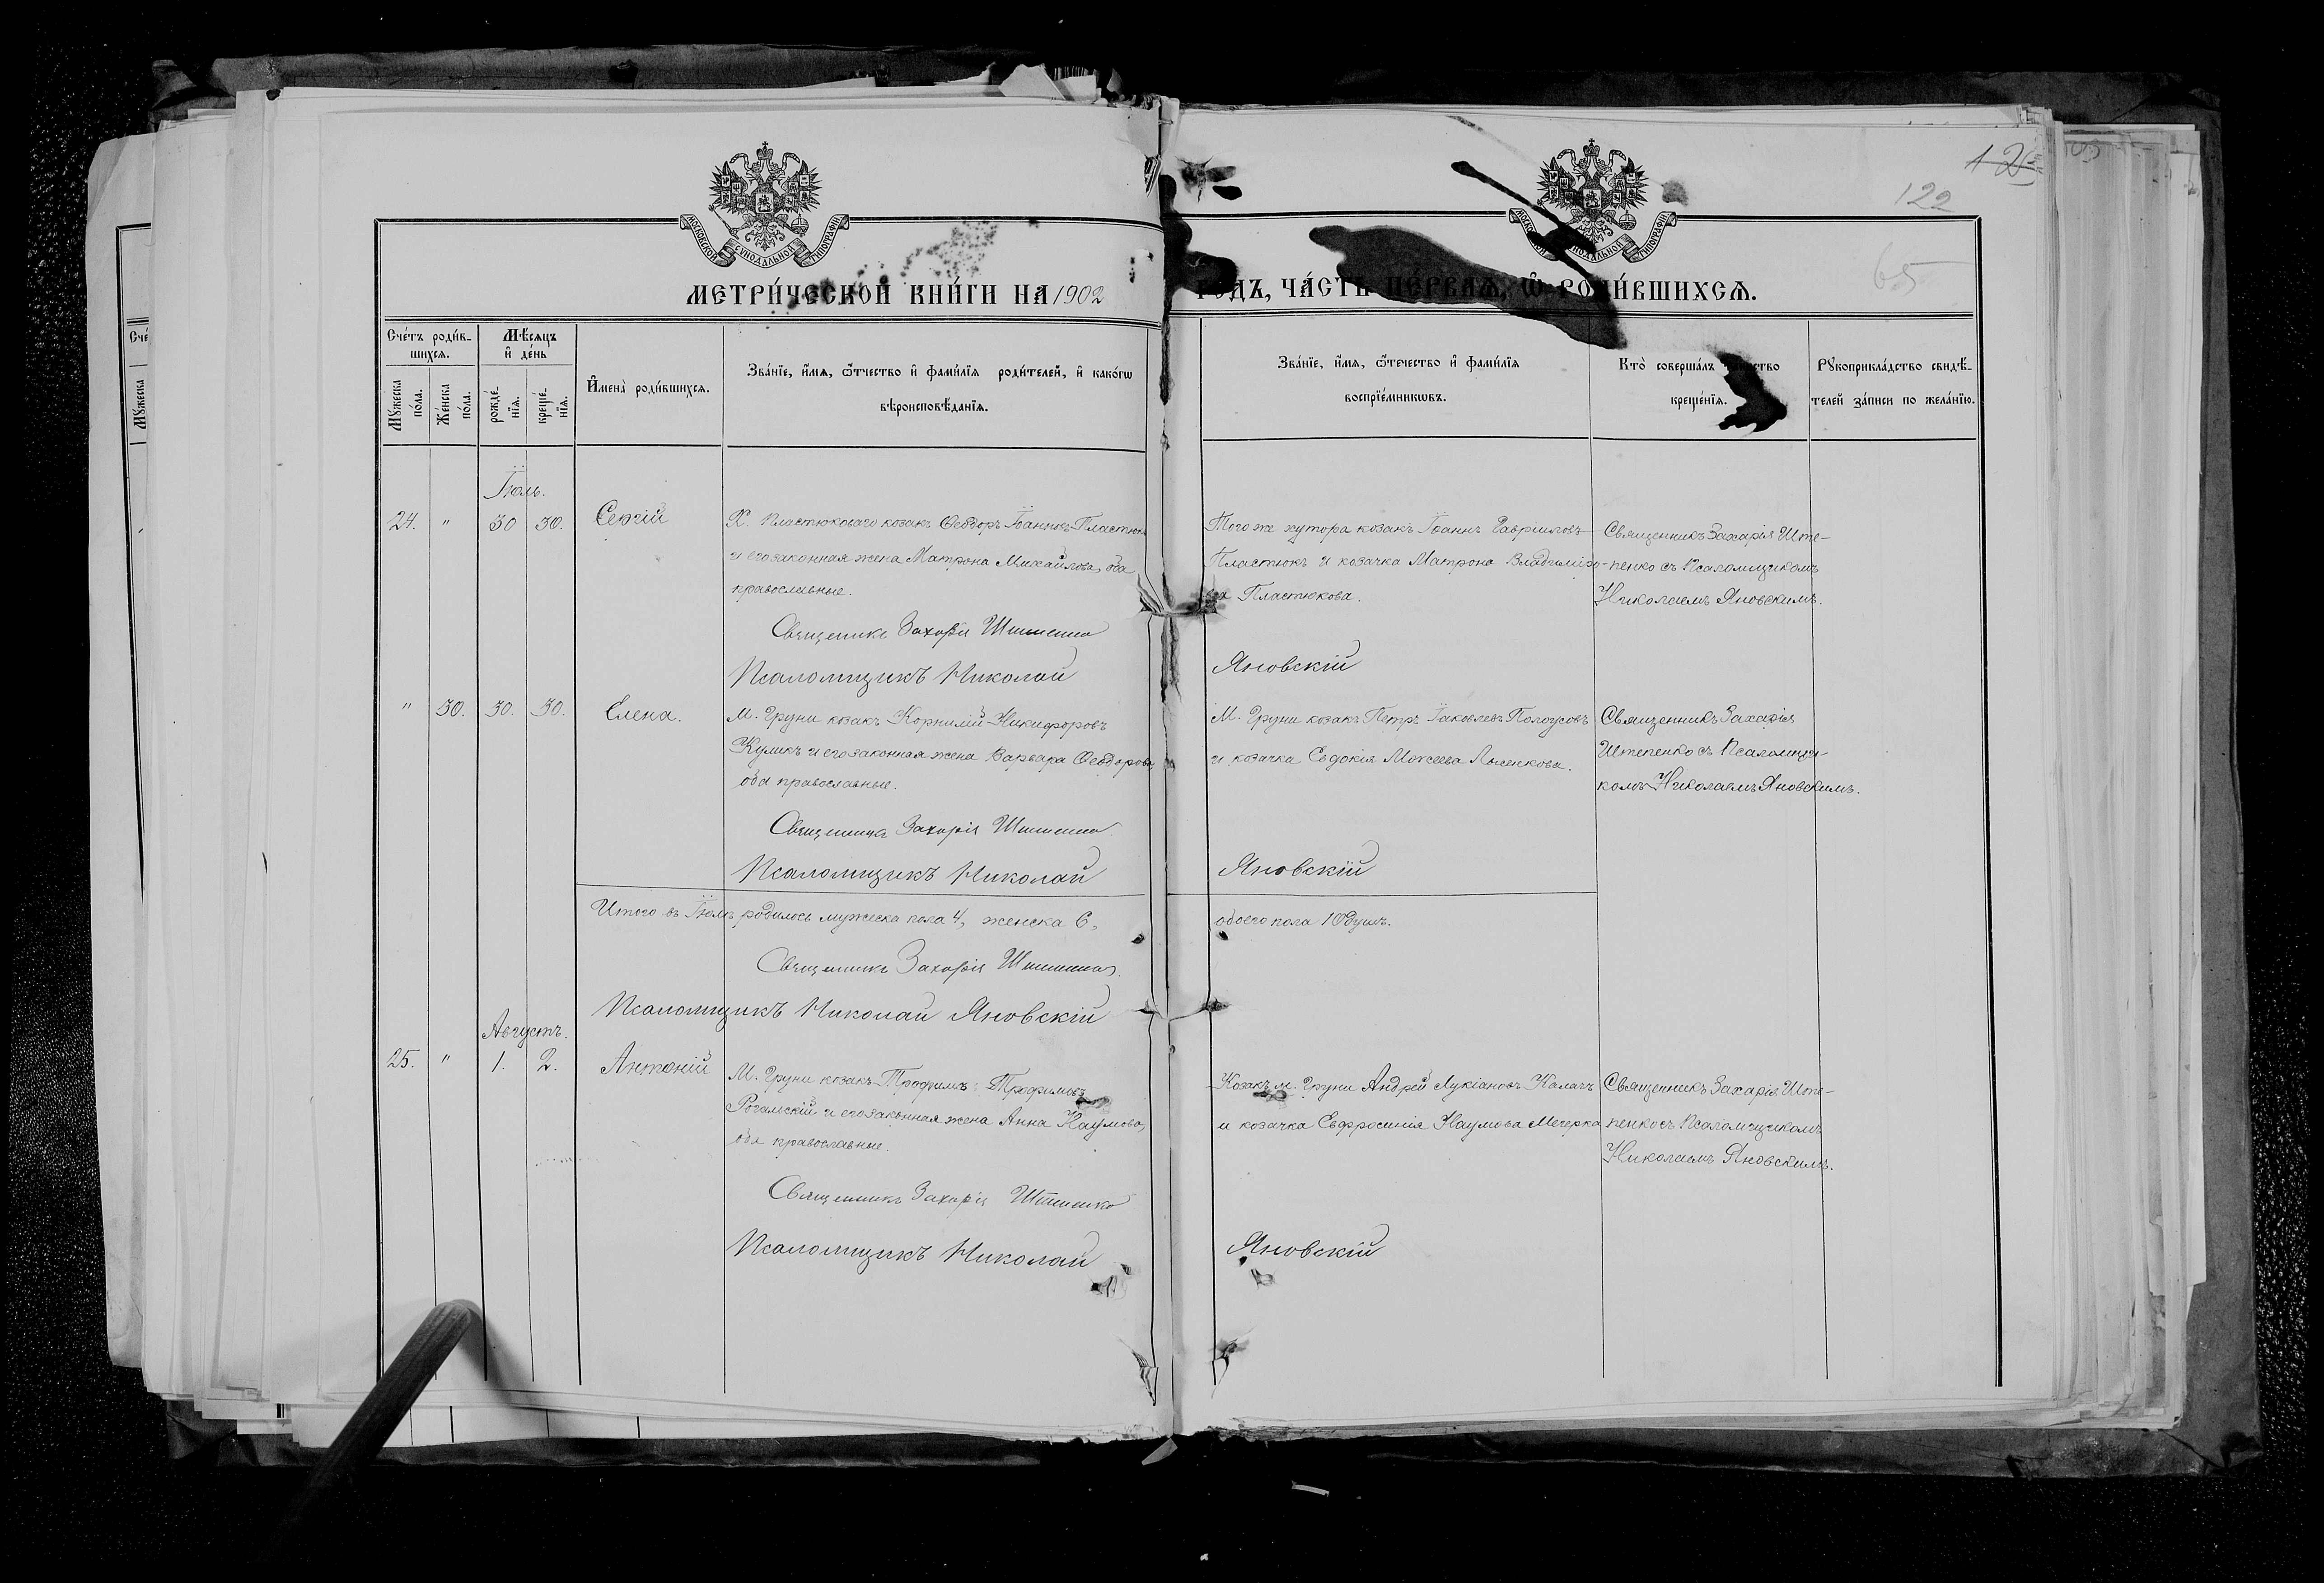 МОСКОВСКОЙ СУНОДАЛЬНОЙ ТИПОГРАФІИ
МОСКОВСКОЙ СУНОДАЛЬНОЙ ТИПОГРАФІИ
122
65
МЕТРИ́ЧЕСКОЙ КНИ́ГИ НА 1902
ГОДЪ, ЧА́СТЬ ПЕ́РВАѦ, Ѡ РОДИ́ВШИХСѦ.
Сче́тъ роди́в-
шихсѧ.
Мѣ́сѧцъ
и҆ де́нь
Мꙋ́жеска
по́ла.
Же́нска
по́ла.
рожде́-
нїѧ.
креще́-
нїѧ.
И҆мена̀ роди́вшихсѧ.
Зва́нїе, и҆́мѧ, ѻ҆́тчество и҆ фами́лїѧ роди́телей, и҆ како́гѡ
вѣроисповѣ́данїѧ.
Зва́нїе, и҆́мѧ, ѻ҆те́чество и҆ фами́лїѧ
воспрїе́мникѡвъ.
Кто̀ соверша́лъ
креще́нїѧ.
Рꙋкоприкла́дство свидѣ́-
телей за́писи по жела́нїю.
Іюль.
24. " 30 30. Сергій
Х. Пластюковаго козакъ Ѳеодоръ Іоанновъ Пластюкъ
и его законная жена Матрона Михайлова, оба
православные.
Священникъ Захарія Штепенко
Псаломщикъ Николай
Того же хутора козакъ Іоаннъ Гавріиловъ
Пластюкъ и козачка Матрона Владиміро-
ва Пластюкова.
Яновскій
Священникъ Захарія Ште-
пенко съ Псаломщикомъ
Николаемъ Яновскимъ.
" 30. 30. 30. Елена.
М. Груни козакъ Корнилій Никифоровъ
Куликъ и его законная жена Варвара Ѳеодорова,
оба православные.
Священникъ Захарія Штепенко
Псаломщикъ Николай
М. Груни козакъ Петръ Іаковлевъ
и козачка Евдокія Моисеева Лысенкова.
Яновскій
Священникъ Захарія
Штепенко съ Псаломщи-
комъ Николаемъ Яновскимъ.
Итого въ Іюлѣ родилось мужеска пола 4, женска 6,
обоего пола 10 душъ.
Священникъ Захарія Штепенко
Псаломщикъ Николай Яновскій
Августъ.
25. " 1. 2. Антоній
М. Груни козакъ Трофимъ Трофимовъ
и его законная жена Анна Наумова,
оба православные.
Священникъ Захарія Штепенко
Псаломщикъ Николай
Козакъ м. Груни Андрей Лукіановъ Калачъ
и козачка Евфросинія Наумова
Яновскій
Священникъ Захарія Ште-
пенко съ Псаломщикомъ
Николаемъ Яновскимъ.